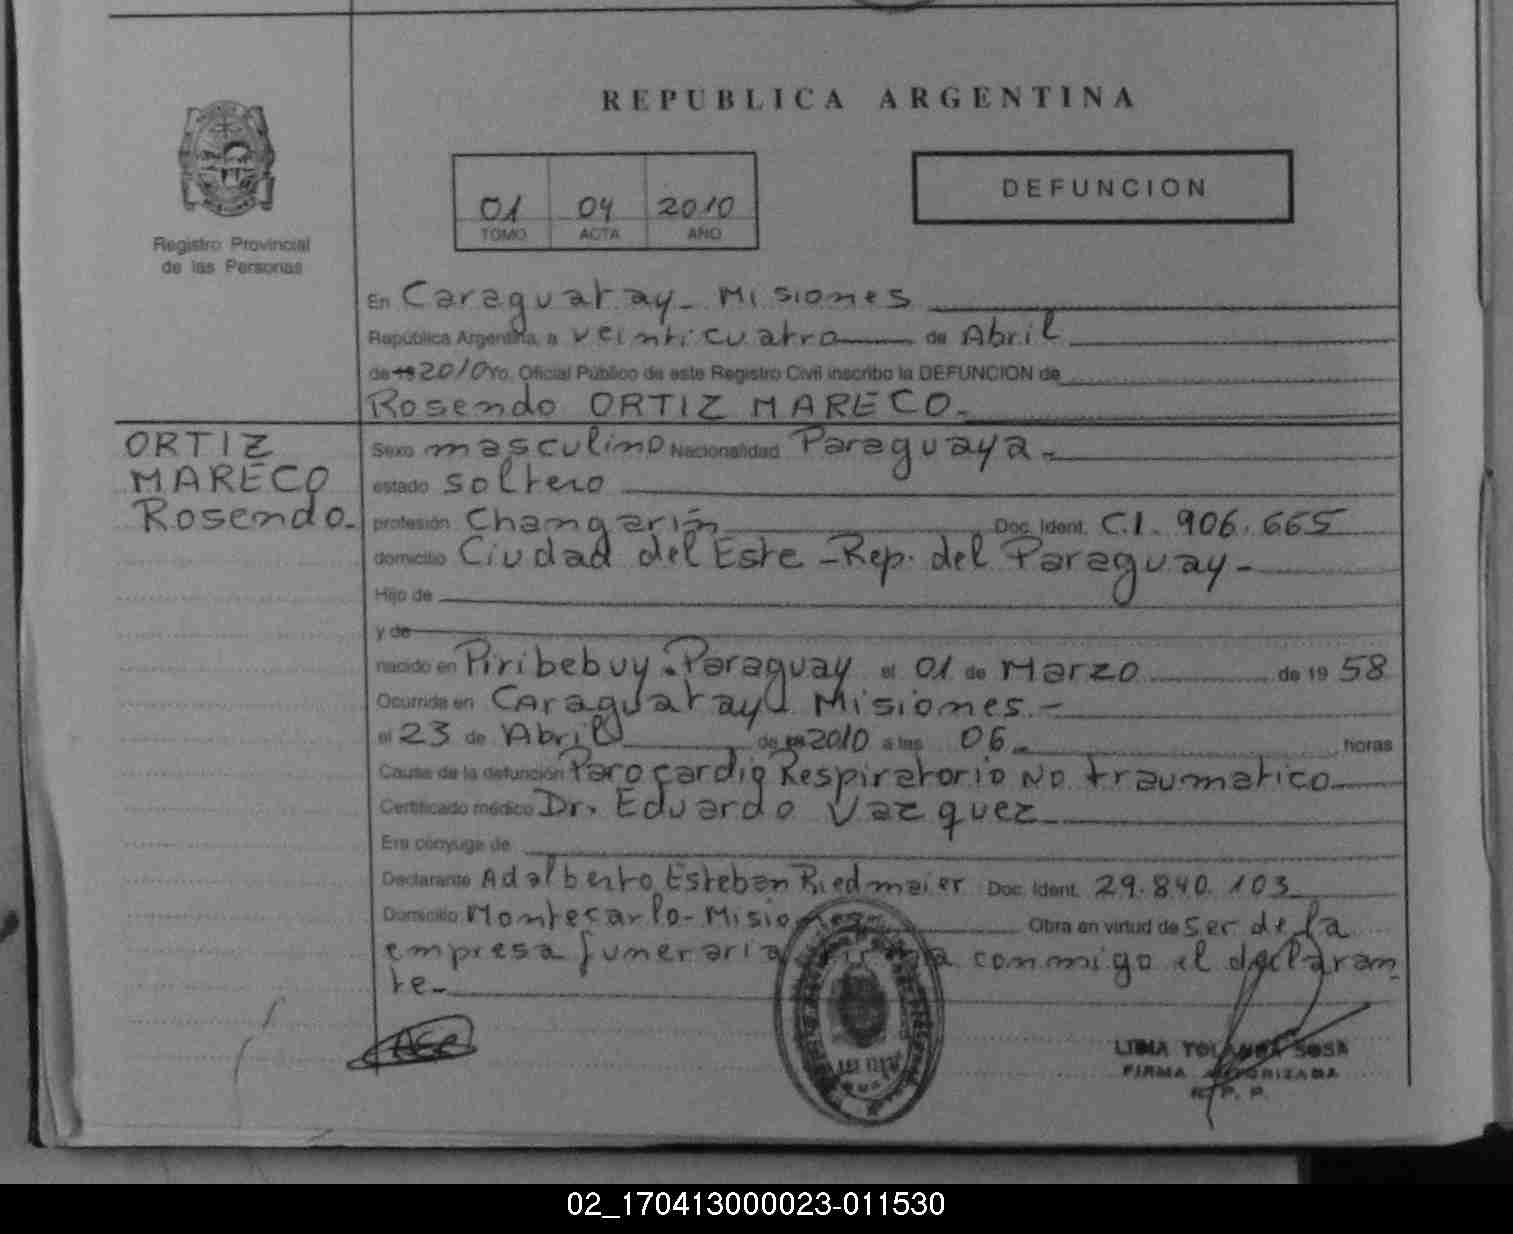 REPUBLICA ARGENTINA
01 04 2010
TOMO ACTA AÑO
DEFUNCION
Registro Provincial
de las Personas
En Caraguatay - Misiones
República Argentina, a veinticuatro de Abril
de 19 2010 Yo, Oficial Público de este Registro Civil inscribo la DEFUNCION de
Rosendo ORTIZ MARECO.
ORTIZ
MARECO
Rosendo.
Sexo masculino Nacionalidad Paraguaya.
estado soltero
profesión Changarín Doc. Ident. C.I. 906.665
domicilio Ciudad del Este - Rep. del Paraguay -
Hijo de
y de
nacido en Piribebuy. Paraguay el 01 de Marzo de 19 58
Ocurrida en Caraguatay Misiones. -
el 23 de Abril de 2010 a las 06 horas
Causa de la defunción Paro Cardio Respiratorio No traumatico
Certificado médico Dr. Eduardo Vazquez
Era cónyuge de
Declarante Adalberto Esteban Riedmaier Doc. Ident. 29.840.103
Domicilio Montecarlo - Misiones Obra en virtud de ser de la
empresa funeraria firma conmigo el declaran
te.
AER
YOLANDA SOSA
FIRMA AUTORIZADA
R. P. P.
02_170413000023-011530